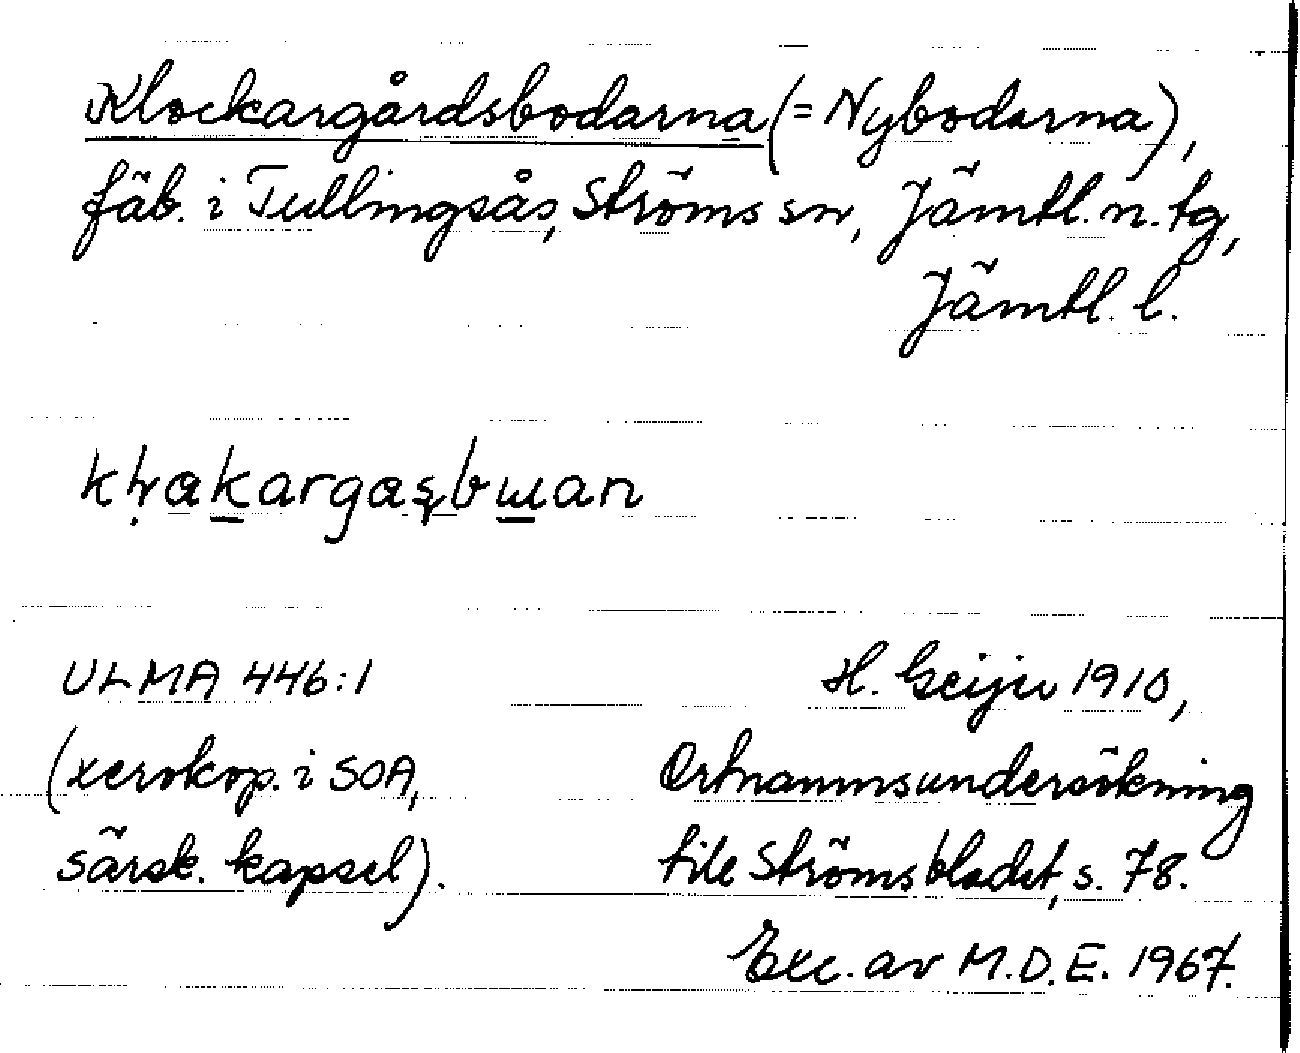 Klockargårdsbodarna (= Nybodarna),
fäb. i Tullingsås, Ströms sn, Jämtl. n. tg,
Jämtl. l.
ULMA 446:1
(xerokop. i SOA,
särsk. kapsel).
H. Geijer 1910,
Ortnamnsundersökning
till Strömsbladet, s. 78.
Exc. av M.D.E. 1967.